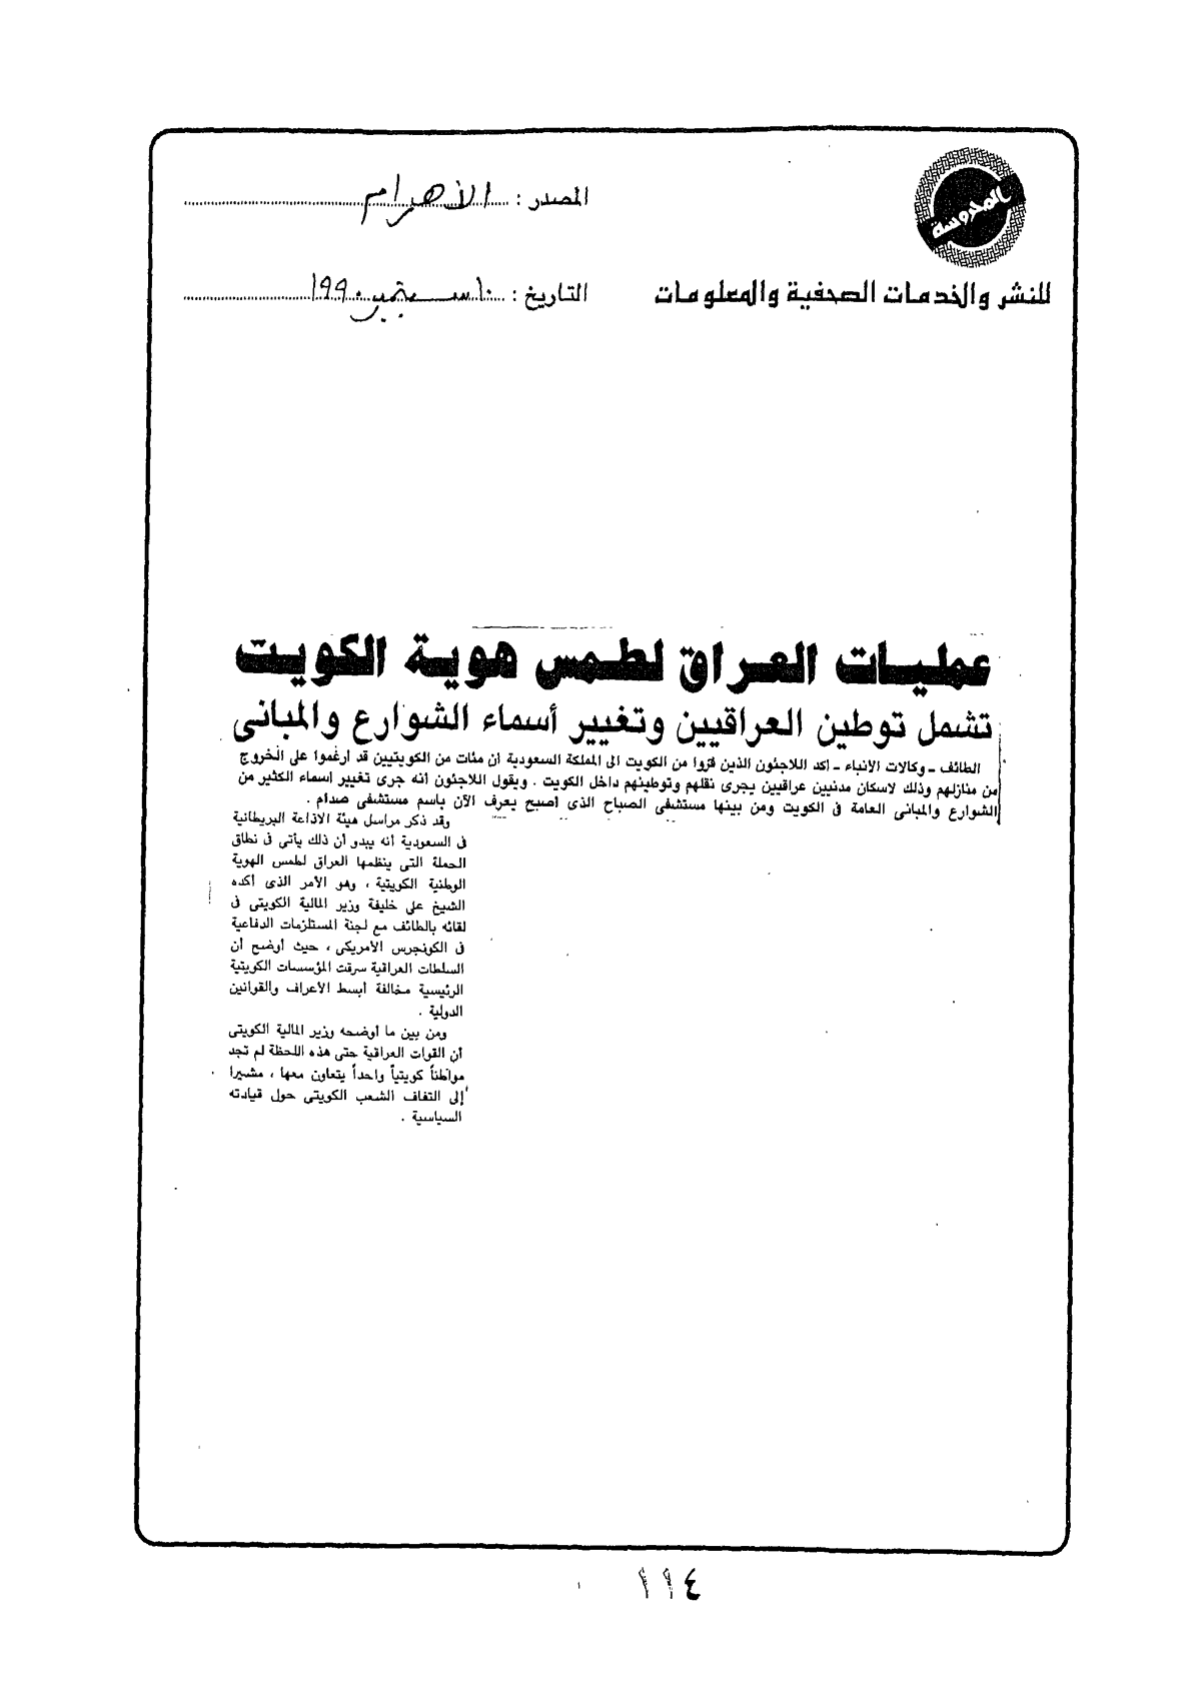 المحروسة
المصدر : الأهرام
للنشر والخدمات الصحفية والمعلومات
التاريخ : ١٠ سبتمبر ١٩٩٠
عمليات العراق لطمس هوية الكويت
تشمل توطين العراقيين وتغيير أسماء الشوارع والمبانى
الطائف - وكالات الانباء - أكد اللاجئون الذين فروا من الكويت الى المملكة السعودية ان مئات من الكويتيين قد ارغموا على الخروج
من منازلهم وذلك لاسكان مدنيين عراقيين يجرى نقلهم وتوطينهم داخل الكويت . ويقول اللاجئون انه جرى تغيير اسماء الكثير من
الشوارع والمبانى العامة فى الكويت ومن بينها مستشفى الصباح الذى اصبح يعرف الآن باسم مستشفى صدام .
وقد ذكر مراسل هيئة الاذاعة البريطانية
فى السعودية أنه يبدو أن ذلك يأتى فى نطاق
الحملة التى ينظمها العراق لطمس الهوية
الوطنية الكويتية ، وهو الأمر الذى أكده
الشيخ على خليفة وزير المالية الكويتى فى
لقائه بالطائف مع لجنة المستلزمات الدفاعية
فى الكونجرس الأمريكى ، حيث أوضح أن
السلطات العراقية سرقت المؤسسات الكويتية
الرئيسية مخالفة أبسط الأعراف والقوانين
الدولية .
ومن بين ما أوضحه وزير المالية الكويتى
أن القوات العراقية حتى هذه اللحظة لم تجد
مواطناً كويتياً واحداً يتعاون معها ، مشيرا
إلى التفاف الشعب الكويتى حول قيادته
السياسية .
١١٤